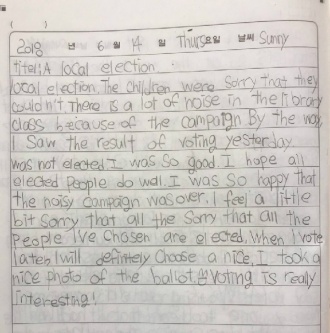 ( )
2018 년 6 월 14 일 Thurs요일 날씨 Sunny
Title: A local election.
local election. The children were Sorry that they
couldn't There is a lot of noise in the library
class because of the campaign By the way,
I Saw the result of voting yesterday
was not elected I was so good I hope all
elected people do well. I was so happy that
the noisy campaign was over. I feel a little
bit Sorry that all the Sorry that all the
people I've chosen are elected. When I vote
later I will definitely choose a nice. I took a
nice photo of the ballot. Voting is really
interesting!